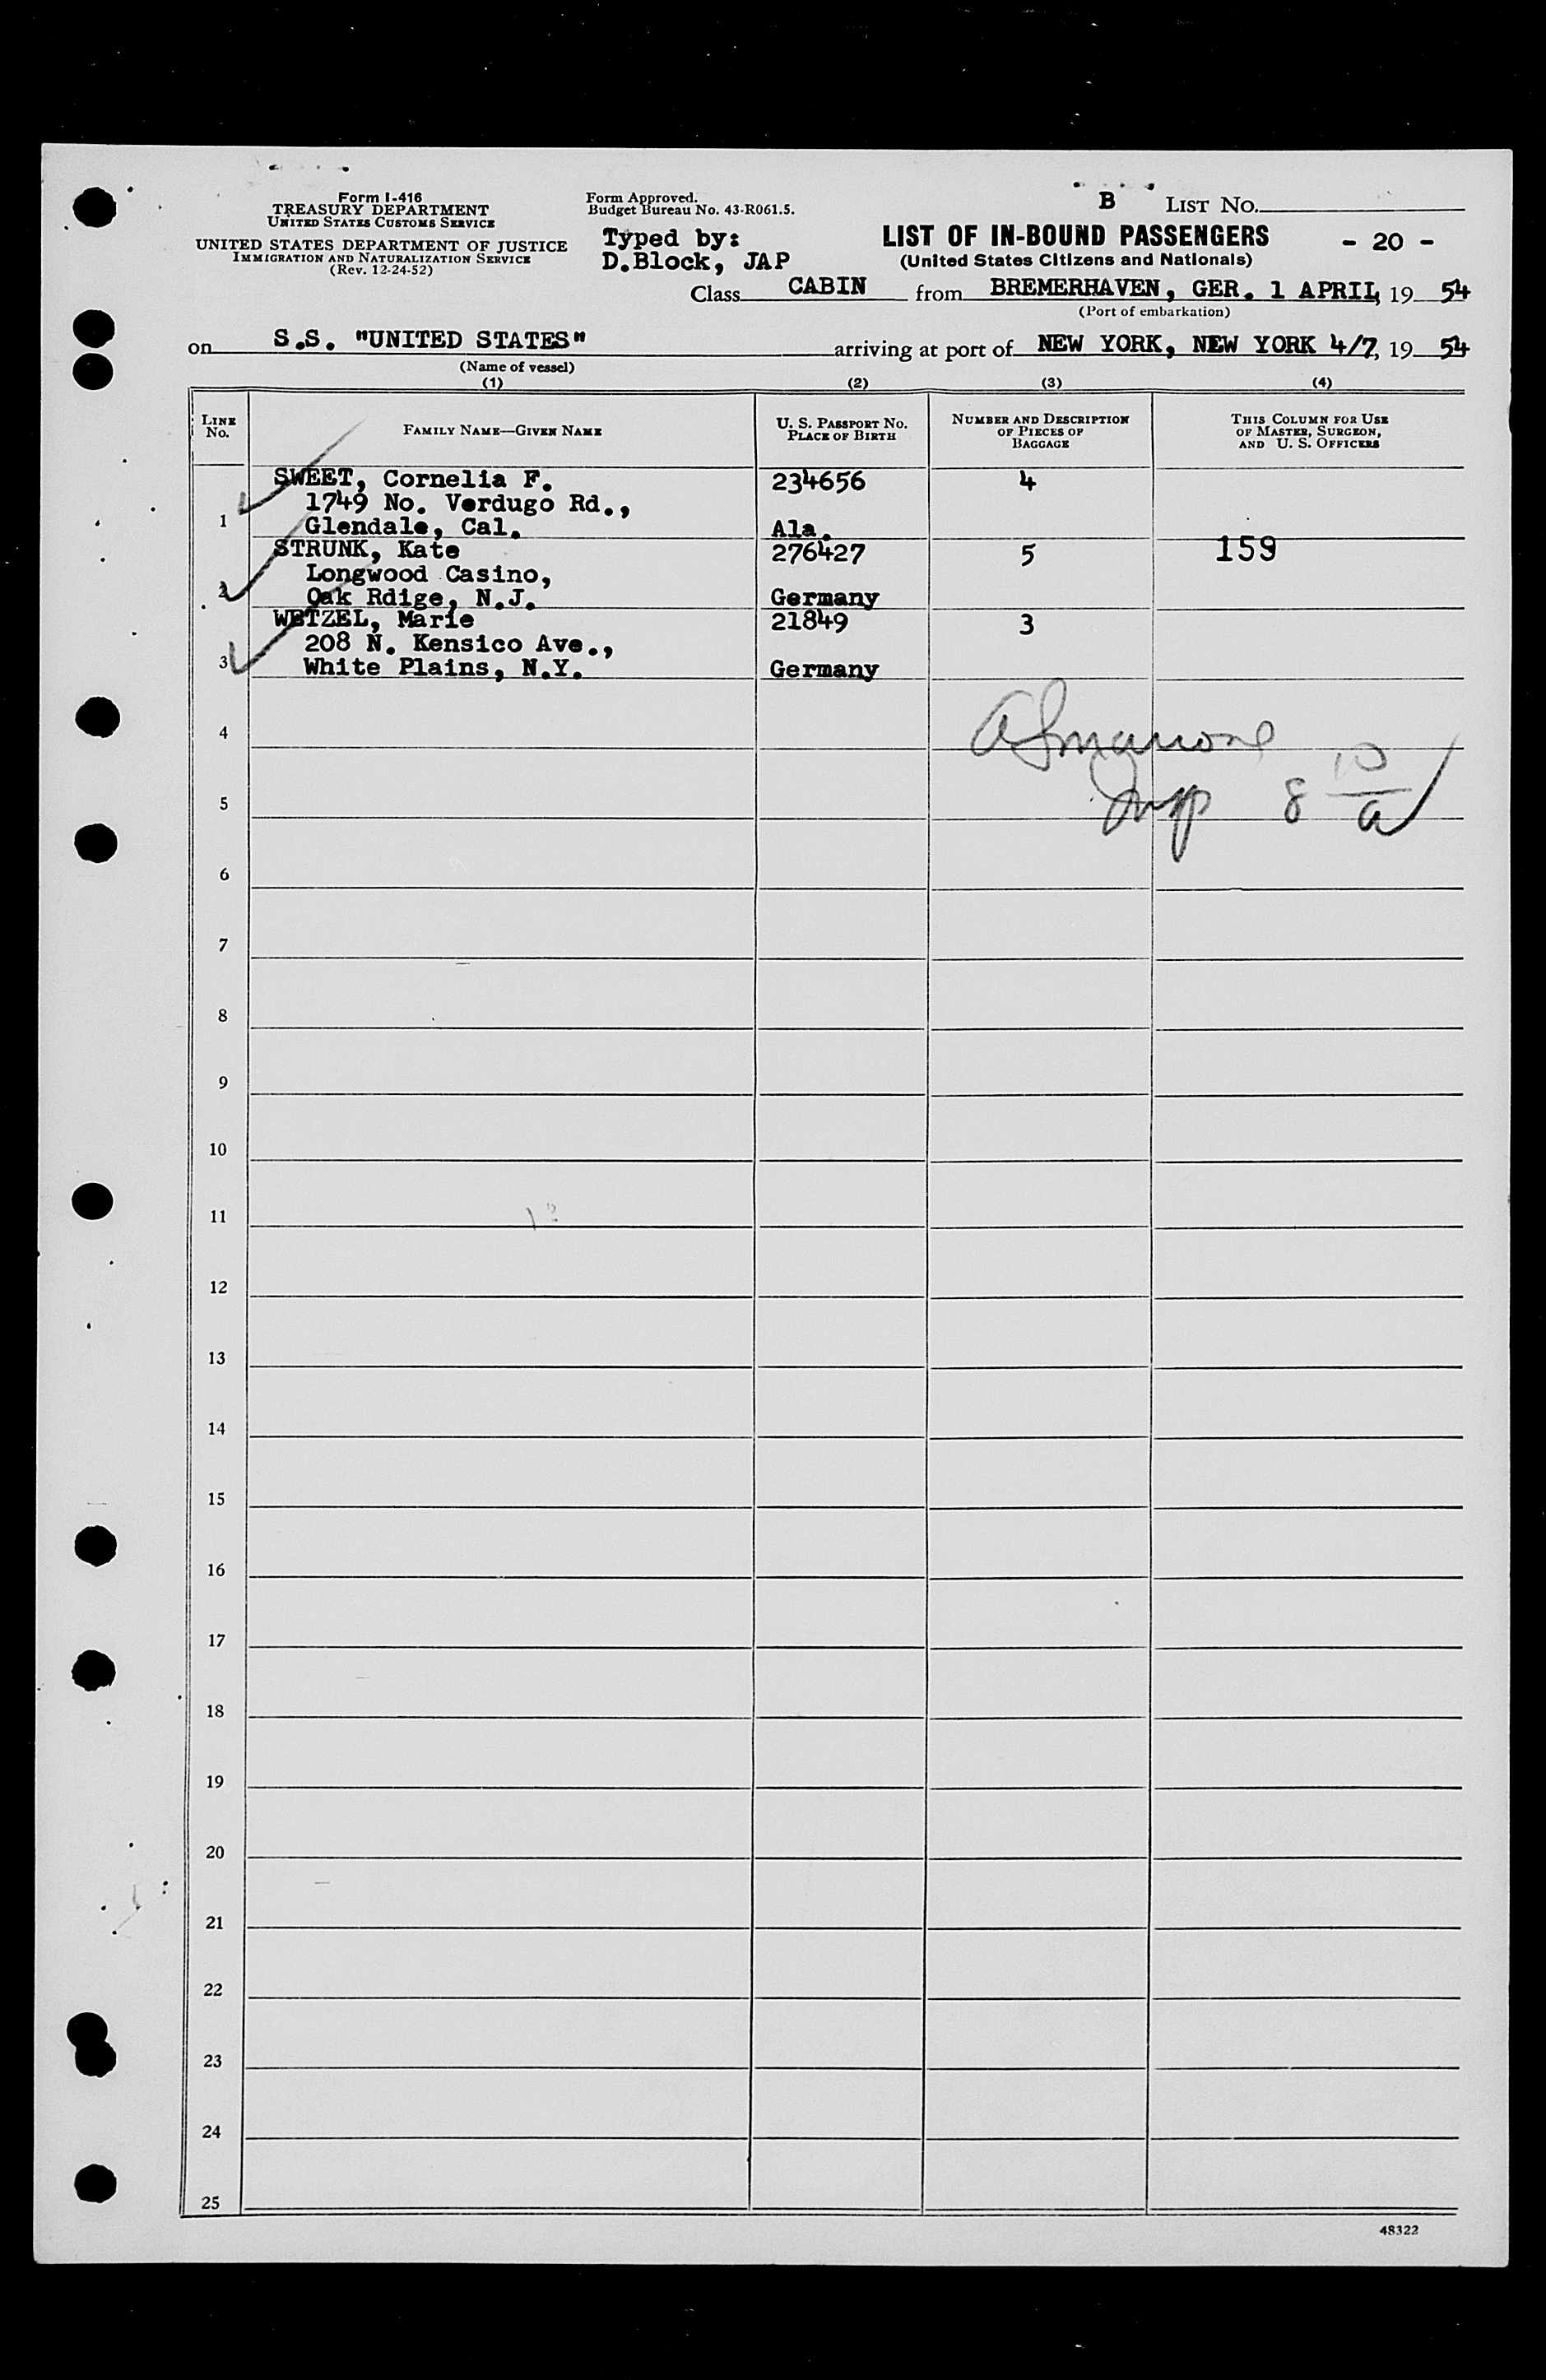 Form I-416
TREASURY DEPARTMENT
UNITED STATES CUSTOMS SERVICE
UNITED STATES DEPARTMENT OF JUSTICE
IMMIGRATION AND NATURALIZATION SERVICE
(Rev. 12-24-52)
Form Approved.
Budget Bureau No. 43-R061.5.
Typed by:
D.Block, JAP
B LIST No.
LIST OF IN-BOUND PASSENGERS - 20 -
(United States Citizens and Nationals)
Class CABIN from BREMERHAVEN, GER. 1 APRIL, 19 54
(Port of embarkation)
on S.S. "UNITED STATES" arriving at port of NEW YORK, NEW YORK 4/7, 19 54
(Name of vessel)
(1) (2) (3) (4)
LINE No.
FAMILY NAME—GIVEN NAME
U. S. PASSPORT No.
PLACE OF BIRTH
NUMBER AND DESCRIPTION
OF PIECES OF
BAGGAGE
THIS COLUMN FOR USE
OF MASTER, SURGEON,
AND U. S. OFFICERS
SWEET, Cornelia F. 234656 4
1749 No. Verdugo Rd.,
1 Glendale, Cal. Ala.
STRUNK, Kate 276427 5 159
Longwood Casino,
2 Oak Rdige, N.J. Germany
WETZEL, Marie 21849 3
208 N. Kensico Ave.,
3 White Plains, N.Y. Germany
4
5 8 10/a
6
7
8
9
10
11
12
13
14
15
16
17
18
19
20
21
22
23
24
25
48322